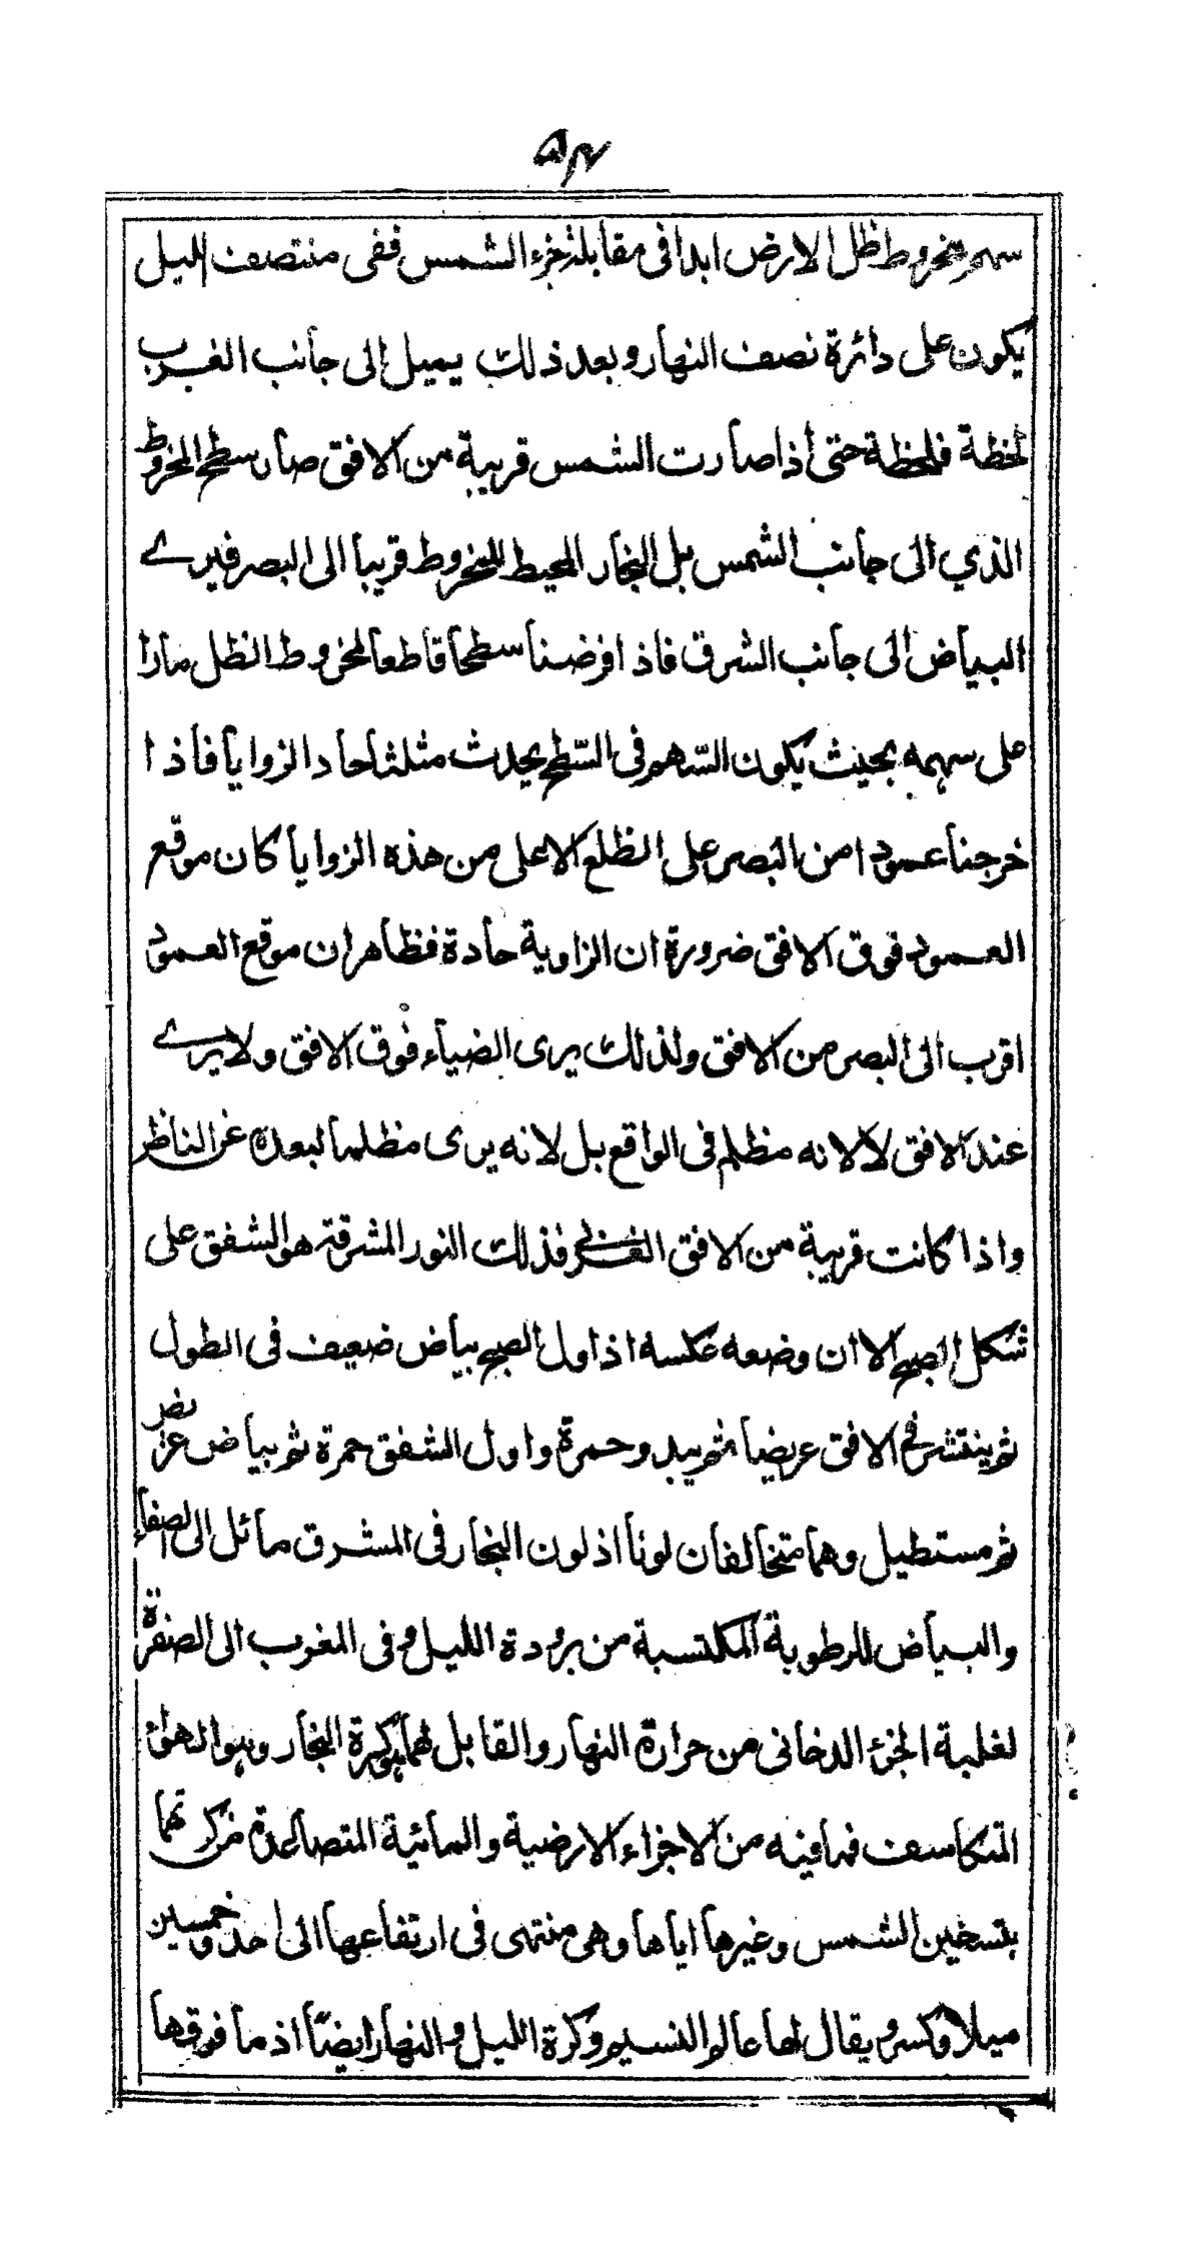 ۵۲
سهم مخروط ظل الارض ابدا فى مقابلة جزء الشمس ففى منتصف الليل
يكون على دائرة نصف النهار وبعد ذلك يميل الى جانب الغرب
لحظة فلحظة حتى اذا صارت الشمس قريبة من الافق صار سطح المخروط
الذي الى جانب الشمس بل البخار المحيط للمخروط قريبا الى البصر فيرے
البياض الى جانب الشرق فاذا فرضنا سطحا قاطعا لمخروط الظل مارا
على سهمه بحيث يكون السّهم فى السّطح يحدث مثلثا حاد الزوايا فاذا
خرجنا عمودا من البصر على الظلع الاعلى من هذه الزوايا كان موقع
العمود فوق الافق ضرورة ان الزاوية حادة فظاهر ان موقع العمود
اقرب الى البصر من الافق ولذلك يرى الضياء فوق الافق ولا يرے
عند الافق لا لانه مظلم فى الواقع بل لانه يرى مظلما لبعده عن الناظر
واذا كانت قريبة من الافق الغربے فذلك النور المشرقة هو الشفق على
شكل الصبح الا ان وضعه عكسه اذ اول الصبح بياض ضعيف فى الطول
ثم ينتشر فى الافق عريضا ثم يبدو حمرة واول الشفق حمرة ثم بياض عريض
ثم مستطيل وهما متخالفان لونا اذ لون البخار فى المشرق مائل الى الصفاء
والبياض للرطوبة المكتسبة من برودة الليل وفى المغرب الى الصفرة
لغلبة الجزء الدخانى من حرارة النهار والقابل لهما هو كرة البخار وهو الهواء
المتكاسف فما فيه من الاجزاء الارضية والمائية المتصاعدة من كرتهما
بتسخين الشمس وغيرها اياها وهى منتهى فى ارتفاعها الى احد وخمسين
ميلا وكسر ويقال لها عالم النسيم وكرة الليل والنهار ايضًا اذ ما فوقها